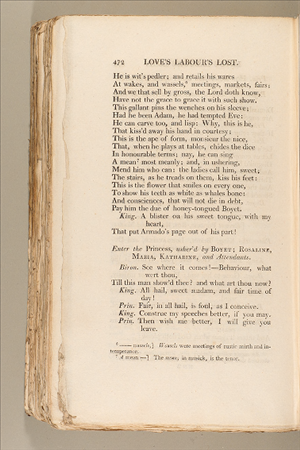 472 LOVE'S LABOUR'S LOST.
He is wit's pedler; and retails his wares
At wakes, and wassels,⁶ meetings, markets, fairs;
And we that sell by gross, the Lord doth know,
Have not the grace to grace it with such show.
This gallant pins the wenches on his sleeve;
Had he been Adam, he had tempted Eve:
He can carve too, and lisp: Why, this is he,
That kiss'd away his hand in courtesy;
This is the ape of form, monsieur the nice,
That, when he plays at tables, chides the dice
In honourable terms; nay, he can sing
A mean⁷ most meanly; and, in ushering,
Mend him who can: the ladies call him, sweet;
The stairs, as he treads on them, kiss his feet:
This is the flower that smiles on every one,
To show his teeth as white as whales bone:
And consciences, that will not die in debt,
Pay him the due of honey-tongued Boyet.
King. A blister on his sweet tongue, with my
heart,
That put Armado's page out of his part!
Enter the Princess, usher'd by BOYET; ROSALINE,
MARIA, KATHARINE, and Attendants.
Biron. See where it comes!—Behaviour, what
wert thou,
Till this man show'd thee? and what art thou now?
King. All hail, sweet madam, and fair time of
day!
Prin. Fair, in all hail, is foul, as I conceive.
King. Construe my speeches better, if you may.
Prin. Then wish me better, I will give you
leave.
⁶ —— wassels,] Wassels were meetings of rustic mirth and in-
temperance.
⁷ A mean—] The mean, in musick, is the tenor.